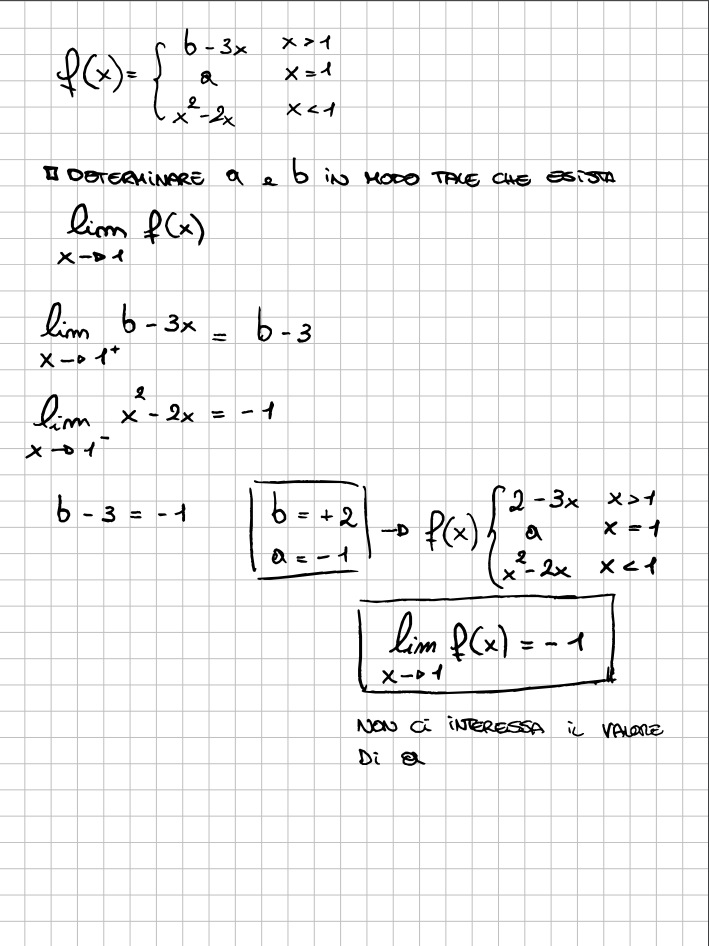 f(x) = { b - 3x x > 1
a x = 1
x² - 2x x < 1
DETERMINARE a e b IN MODO TALE CHE ESISTA
lim f(x)
x → 1
lim b - 3x = b - 3
x → 1⁺
lim x² - 2x = -1
x → 1⁻
b - 3 = -1
b = +2
a = -1
→ f(x) { 2 - 3x x > 1
a x = 1
x² - 2x x < 1
lim f(x) = -1
x → 1
NON CI INTERESSA IL VALORE
DI a